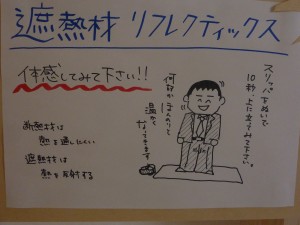 遮熱材 リフレクティックス
体感してみて下さい!!
スリッパ下ぬいで
10秒、上に立ってみて下さい。
何故かほんのりと
温かく
なってきます
断熱材は
熱を通しにくい
遮熱材は
熱を反射する